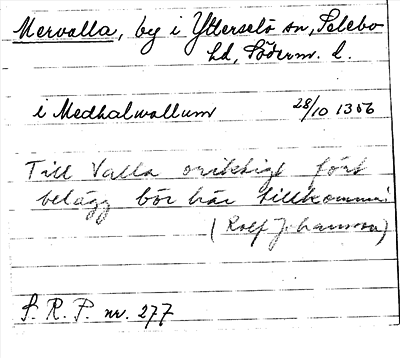 Mervalla, by i Ytterselö sn, Selebo
hd, Söderm. l.
i Medhalwallum 28/10 1356
Till Valla oriktigt fört
belägg bör här tillkomma!
(Rolf Johansson)
S. R. P. nr. 277